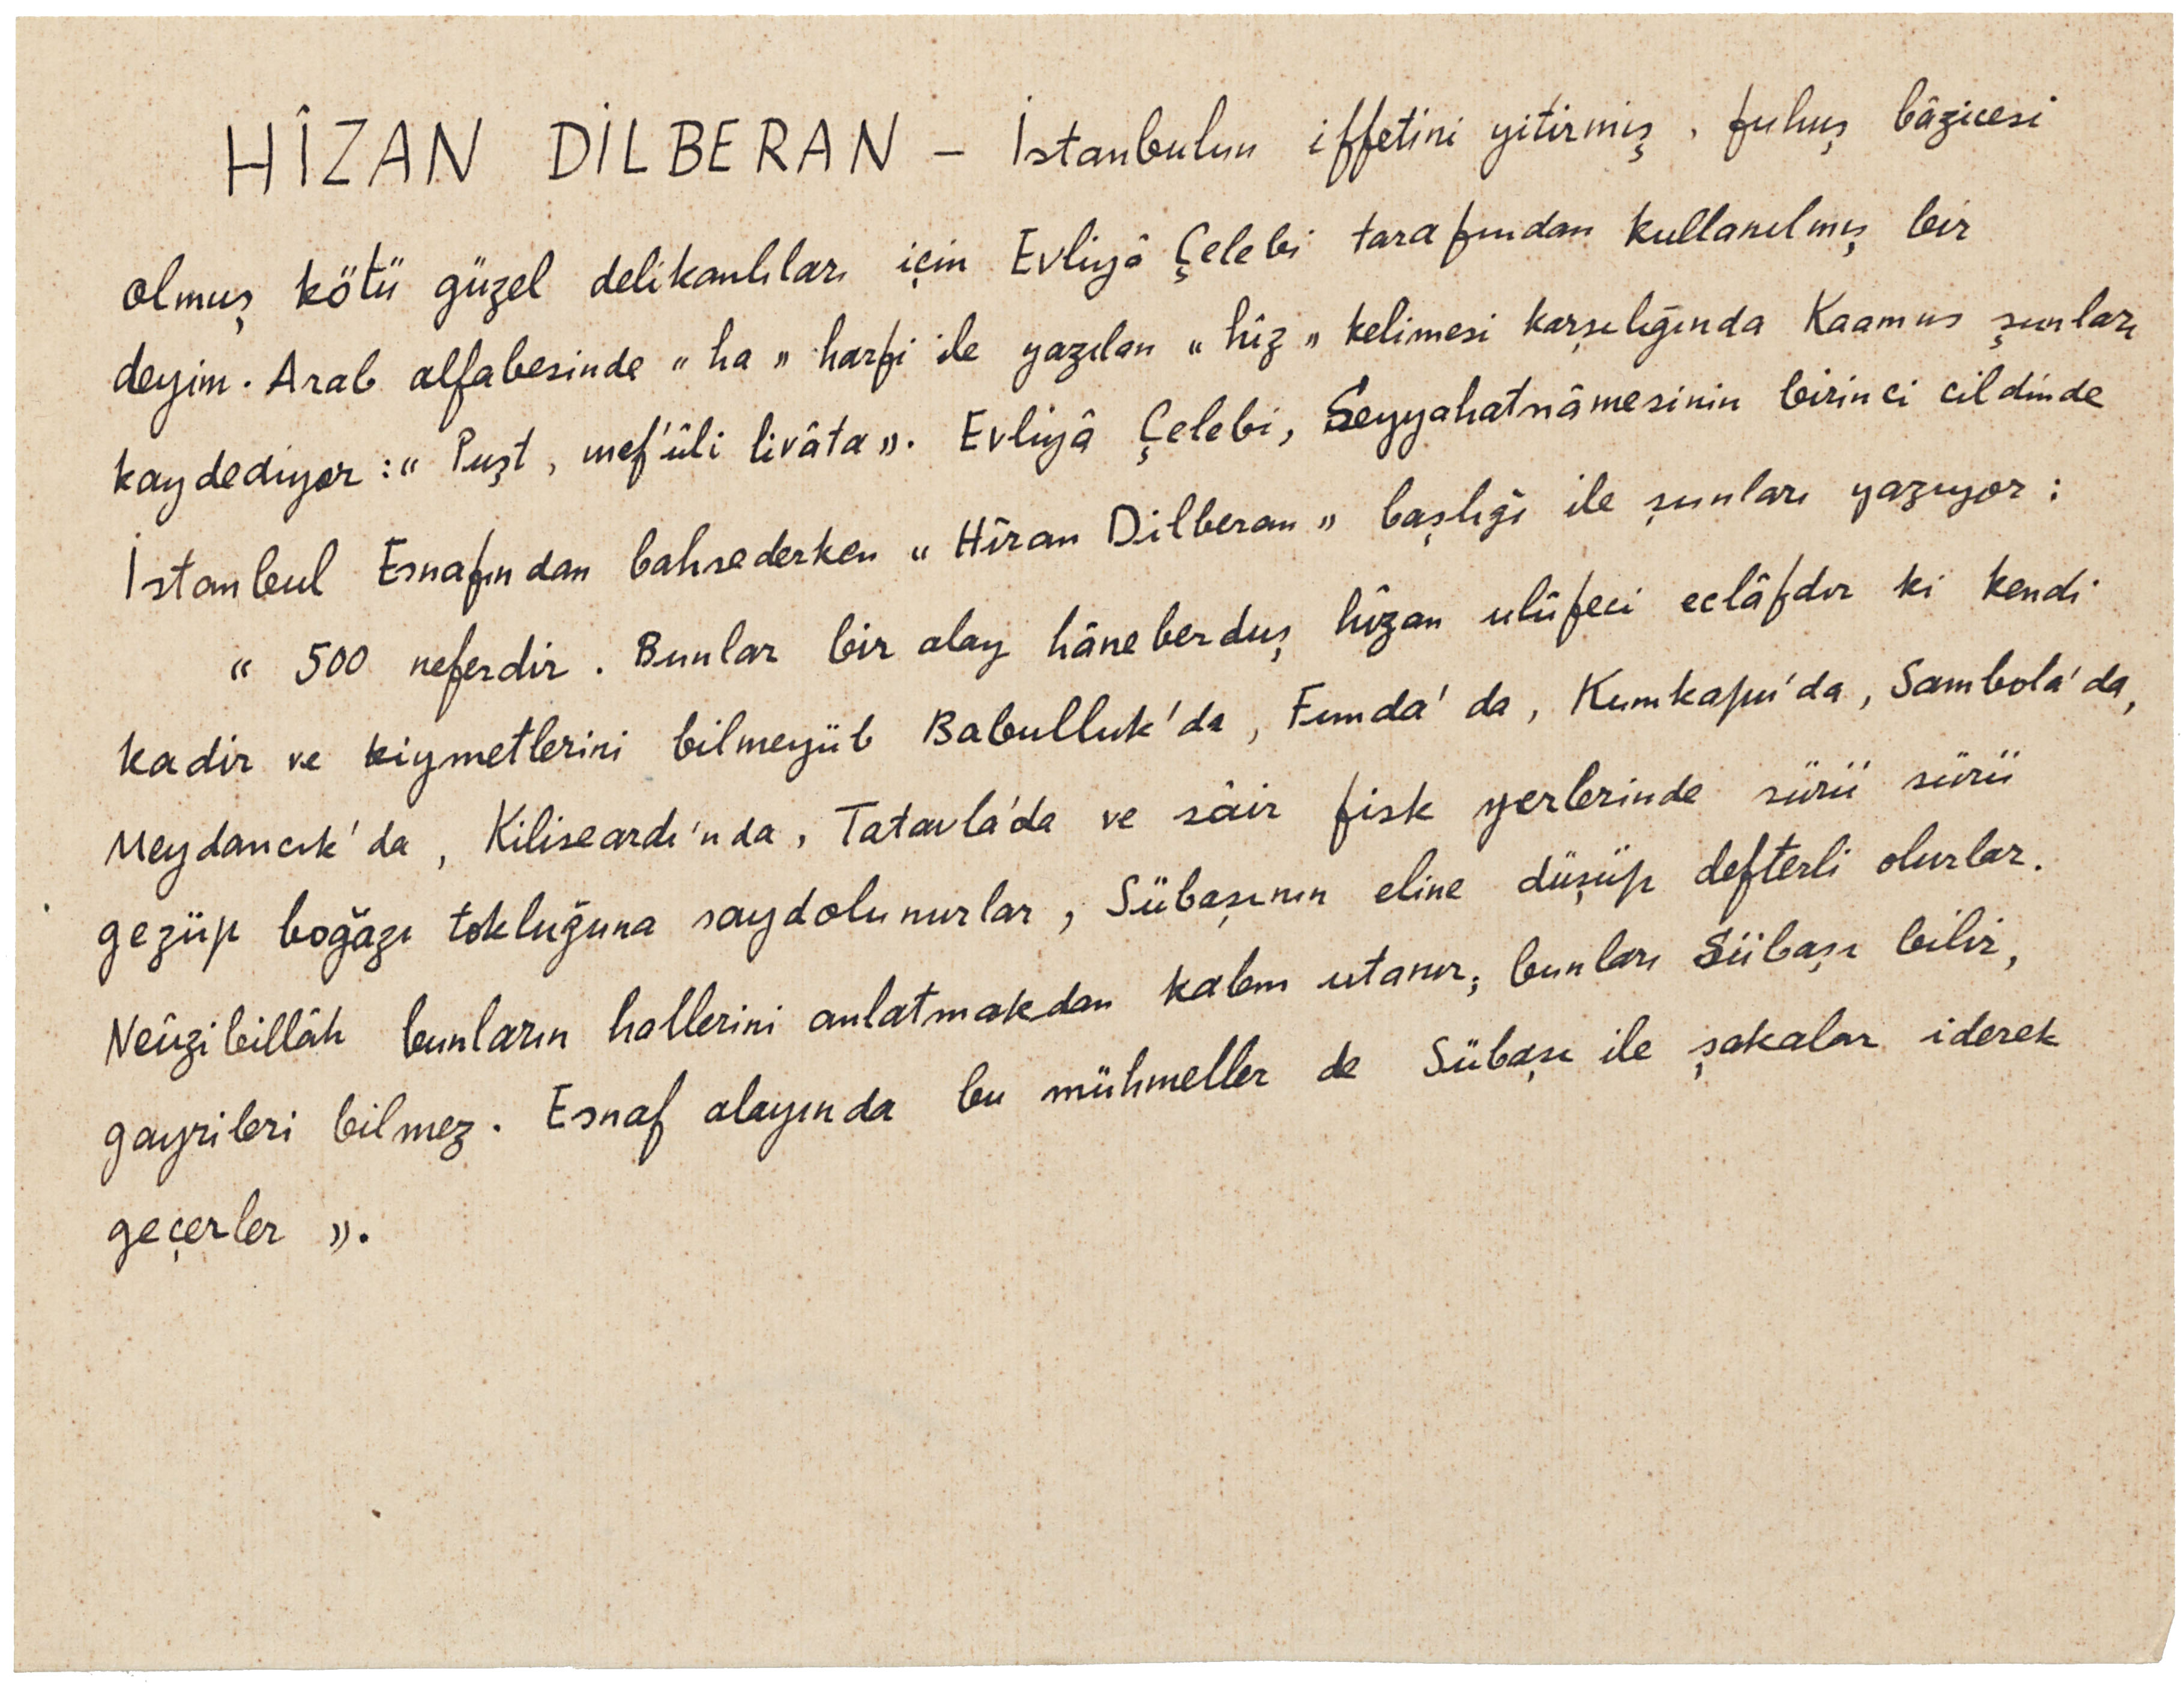 HÎZAN DİLBERAN — İstanbulun iffetini yitirmiş, fuhuş bâzicesi
olmuş kötü güzel delikanlıları için Evliyâ Çelebi tarafından kullanılmış bir
deyim. Arab alfabesinde "ha" harfi ile yazılan "hîz" kelimesi karşılığında Kaamus şunları
kaydediyor: "Puşt, mef'ûli livâta". Evliyâ Çelebi, Seyyahatnâmesinin birinci cildinde
İstanbul Esnafından bahsederken "Hîzan Dilberan" başlığı ile şunları yazıyor:
"500 neferdir. Bunlar bir alay hâneberduş hîzan ulûfeci eclâfdır ki kendi
kadir ve kiymetlerini bilmeyüb Babulluk'da, Funda'da, Kumkapu'da, Sambola'da,
Meydancık'da, Kiliseardı'nda, Tatavla'da ve sâir fisk yerlerinde sürü sürü
gezüp boğazı tokluğuna saydolunurlar, Sübaşının eline düşüp defterli olurlar.
Neûzibillâh bunların hallerini anlatmakdan kalem utanır; bunları Sübaşı bilir,
gayrileri bilmez. Esnaf alayında bu mühmeller de Sübaşı ile şakalar iderek
geçerler".